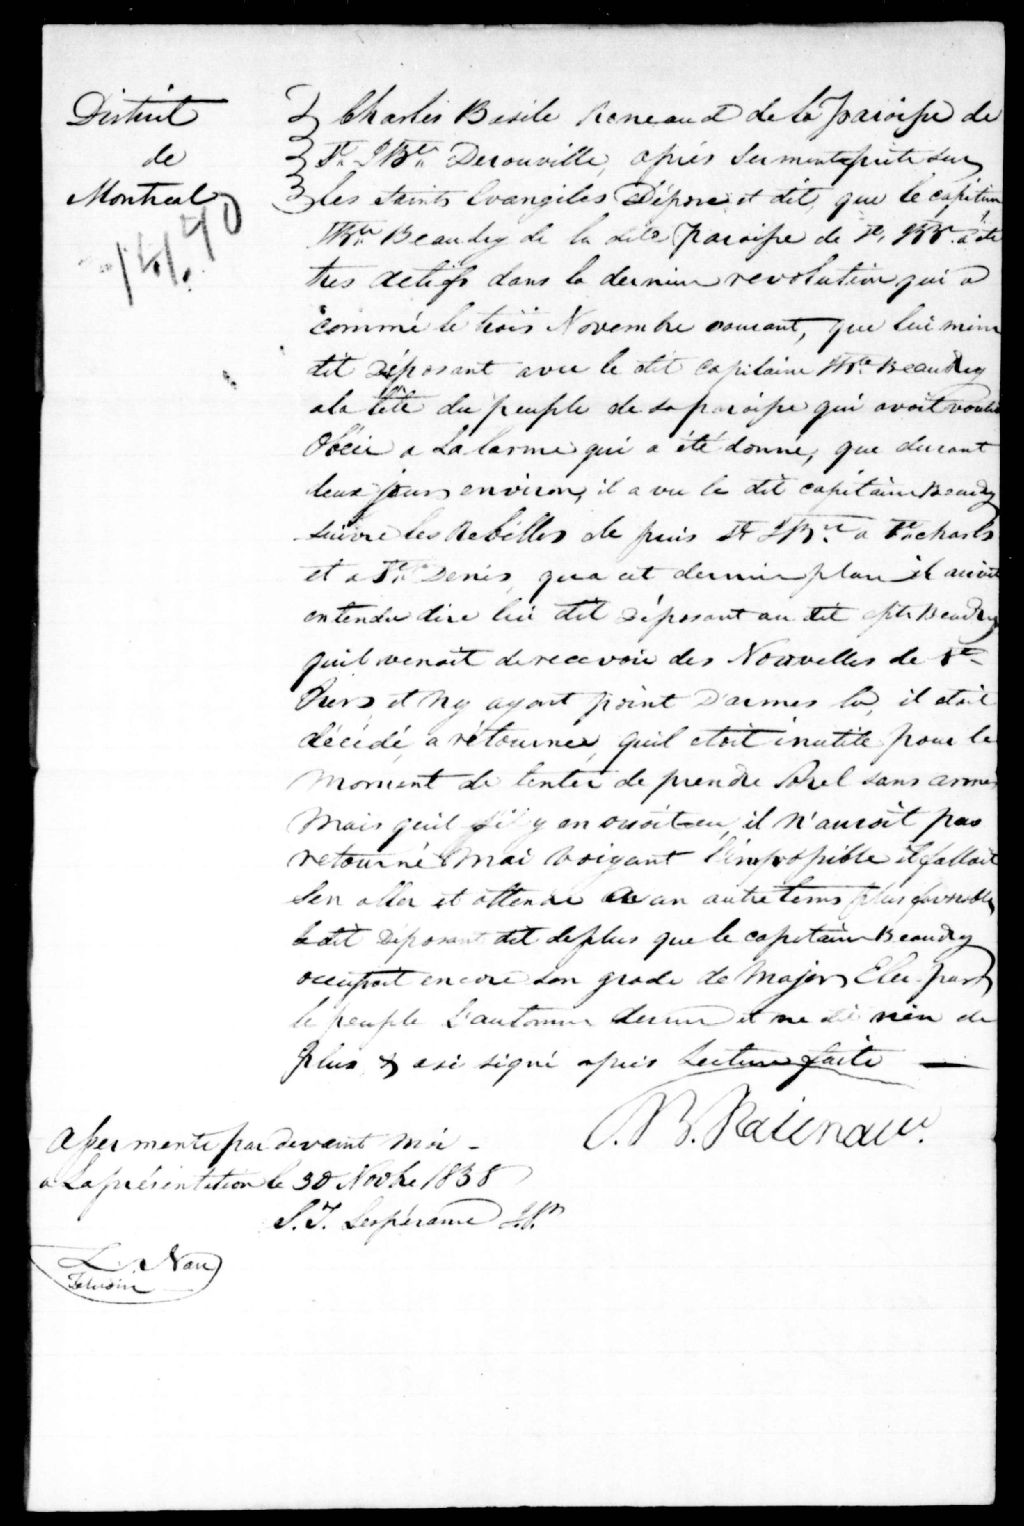 District
de
Montreal
Charles Basile Reneaud de la Paroisse de
St. J Bte. Derouville, après serment prete sur
les saints Evangiles Dépose et dit, que le capitain
JBte Beaudry de la dite paroisse de St. JBte. a été
tres actifs dans la dernier revolution qui a
commé le trois Novembre courant, que lui mem
dit Déposant avu le dit capitaine JBte. Beaudry
ala tête du peuple de sa paroisse qui avoit voulu
Obéir a La larme qui a été donné, que durant
deux jours environ, il a vu le dit capitain Beaudry
suivre les Rebélles de puis St JBte a St. charles
et a St. Denis, qua cet dernier place il auroit
entendu dire lui dit Déposant au dit cpte Beaudry
quil venoit de recevoir des Nouvelles de St
Ours, et Ny ayant point D'armes la, il etoit
décédé, a rétourner, quil etoit inutile pour le
Moment de tenter de prendre Sorel sans armes
Mais quil s'il y en avoit eu, il N'auroit pas
retourné Mai voigant l'impossible il falloit
Sen aller et attendre un autre tems plus favorable
le dit Déposant dit deplus que le capitain Beaudry
occupoit encore son grade de Major Elu par
le peuple L'automne dernier et ne dit rien de
Plus & a si signé après Lecture faite —
C. B. Raienau.
Assermenté par devant Moi -
a La présentation le 30 Novbre 1838
L. Nau
Temoin